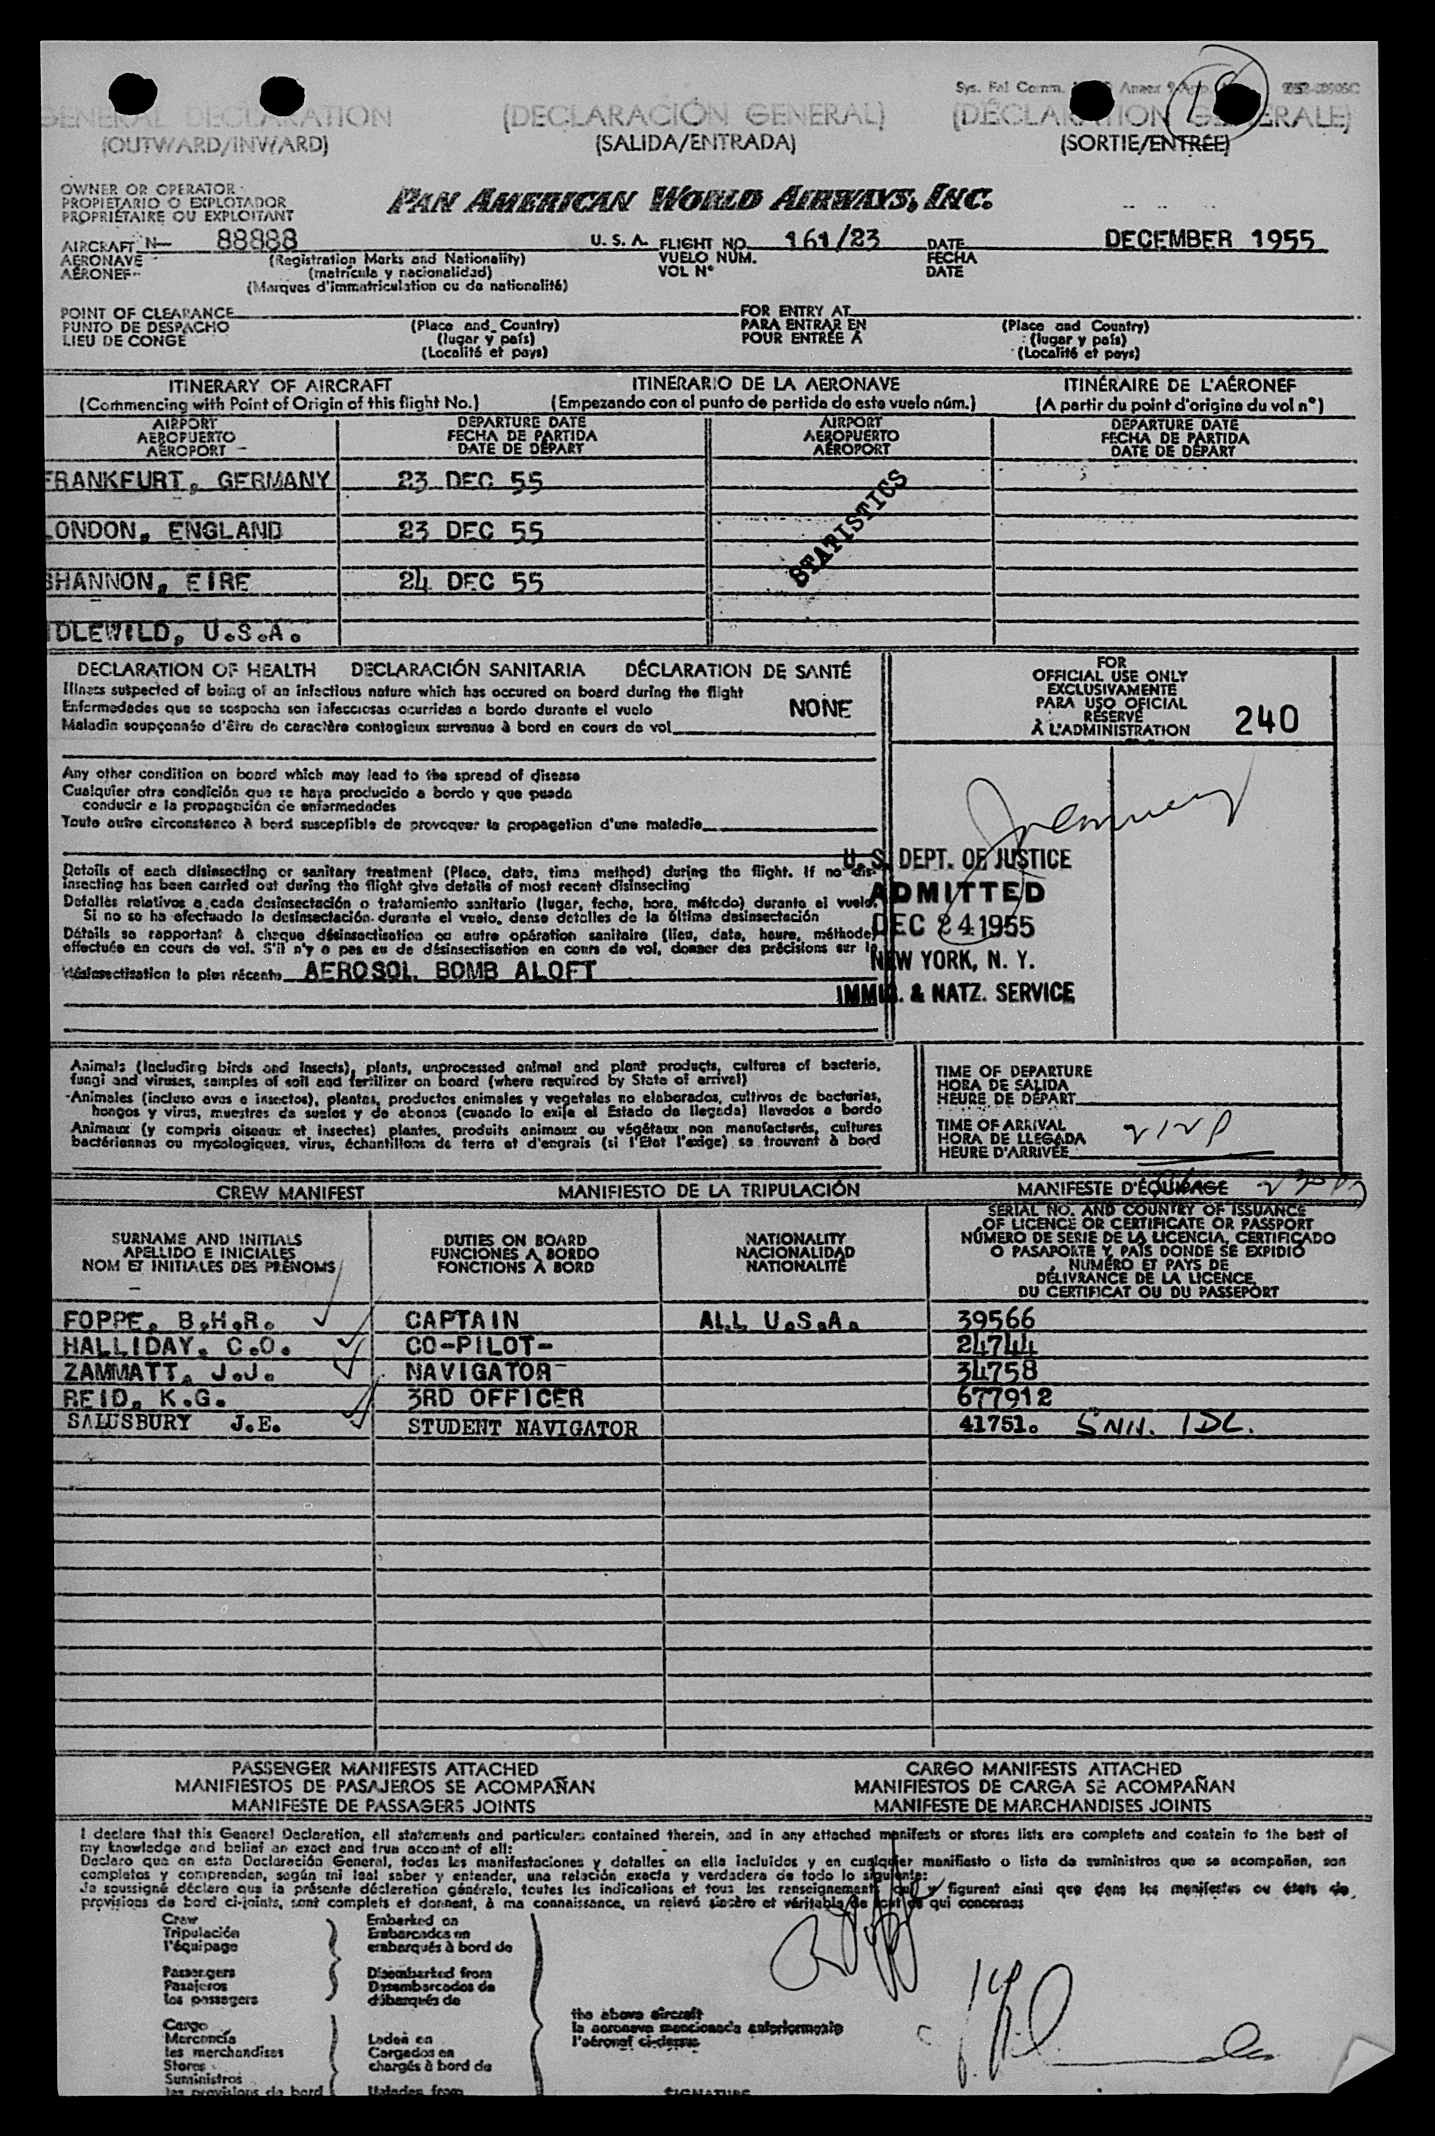 GENERAL DECLARATION (DECLARACIÓN GENERAL) (DÉCLARATION GÉNÉRALE)
(OUTWARD/INWARD) (SALIDA/ENTRADA) (SORTIE/ENTRÉE)
OWNER OR OPERATOR
PROPIETARIO O EXPLOTADOR
PROPRIÉTAIRE OU EXPLOITANT
PAN AMERICAN WORLD AIRWAYS, INC.
AIRCRAFT N- 88888 U. S. A. FLIGHT NO. 161/23 DATE DECEMBER 1955
AERONAVE (Registration Marks and Nationality) VUELO NÚM. FECHA
AÉRONEF (matrícula y nacionalidad) VOL N° DATE
(Marques d'immatriculation ou de nationalité)
POINT OF CLEARANCE FOR ENTRY AT
PUNTO DE DESPACHO (Place and Country) PARA ENTRAR EN (Place and Country)
LIEU DE CONGÉ (lugar y país) POUR ENTRÉE À (lugar y país)
(Localité et pays) (Localité et pays)
ITINERARY OF AIRCRAFT ITINERARIO DE LA AERONAVE ITINÉRAIRE DE L'AÉRONEF
(Commencing with Point of Origin of this flight No.) (Empezando con el punto de partida de este vuelo núm.) (A partir du point d'origine du vol n°)
AIRPORT DEPARTURE DATE AIRPORT DEPARTURE DATE
AEROPUERTO FECHA DE PARTIDA AEROPUERTO FECHA DE PARTIDA
AÉROPORT DATE DE DÉPART AÉROPORT DATE DE DÉPART
FRANKFURT, GERMANY 23 DEC 55
LONDON, ENGLAND 23 DEC 55
STATISTICS
SHANNON, EIRE 24 DEC 55
IDLEWILD, U.S.A.
DECLARATION OF HEALTH DECLARACIÓN SANITARIA DÉCLARATION DE SANTÉ
Illness suspected of being of an infectious nature which has occured on board during the flight
Enfermedades que se sospecha son infecciosas ocurridas a bordo durante el vuelo NONE
Maladie soupçonnée d'être de caractère contagieux survenue à bord en cours de vol
FOR
OFFICIAL USE ONLY
EXCLUSIVAMENTE
PARA USO OFICIAL
RÉSERVÉ
À L'ADMINISTRATION
240
Any other condition on board which may lead to the spread of disease
Cualquier otra condición que se haya producido a bordo y que pueda
conducir a la propagación de enfermedades
Toute autre circonstance à bord susceptible de provoquer la propagation d'une maladie
U. S. DEPT. OF JUSTICE
ADMITTED
DEC 24 1955
NEW YORK, N. Y.
IMMIG. & NATZ. SERVICE
Details of each disinsecting or sanitary treatment (Place, date, time method) during the flight. If no dis-
insecting has been carried out during the flight give details of most recent disinsecting
Detalles relativos a cada desinsectación o tratamiento sanitario (lugar, fecha, hora, método) durante el vuelo.
Si no se ha efectuado la desinsectación durante el vuelo, dense detalles de la última desinsectación
Détails se rapportant à chaque désinsectisation ou autre opération sanitaire (lieu, date, heure, méthode)
effectuée en cours de vol. S'il n'y a pas eu de désinsectisation en cours de vol, donner des précisions sur la
désinsectisation la plus récente AEROSOL BOMB ALOFT
Animals (including birds and insects), plants, unprocessed animal and plant products, cultures of bacteria,
fungi and viruses, samples of soil and fertilizer on board (where required by State of arrival)
Animales (incluso aves e insectos), plantas, productos animales y vegetales no elaborados, cultivos de bacterias,
hongos y virus, muestras de suelos y de abonos (cuando lo exija el Estado de llegada) llevados a bordo
Animaux (y compris oiseaux et insectes) plantes, produits animaux ou végétaux non manufacturés, cultures
bactériennes ou mycologiques, virus, échantillons de terre et d'engrais (si l'Etat l'exige) se trouvant à bord
TIME OF DEPARTURE
HORA DE SALIDA
HEURE DE DÉPART
TIME OF ARRIVAL
HORA DE LLEGADA
HEURE D'ARRIVÉE
212P
CREW MANIFEST MANIFIESTO DE LA TRIPULACIÓN MANIFESTE D'ÉQUIPAGE
SURNAME AND INITIALS
APELLIDO E INICIALES
NOM ET INITIALES DES PRÉNOMS
DUTIES ON BOARD
FUNCIONES A BORDO
FONCTIONS À BORD
NATIONALITY
NACIONALIDAD
NATIONALITÉ
SERIAL NO. AND COUNTRY OF ISSUANCE
OF LICENCE OR CERTIFICATE OR PASSPORT
NÚMERO DE SERIE DE LA LICENCIA, CERTIFICADO
O PASAPORTE Y PAÍS DONDE SE EXPIDIÓ
NUMÉRO ET PAYS DE
DÉLIVRANCE DE LA LICENCE,
DU CERTIFICAT OU DU PASSEPORT
FOPPE, B.H.R. CAPTAIN ALL U.S.A. 39566
HALLIDAY, C.O. CO-PILOT- 24744
ZAMMATT, J.J. NAVIGATOR 34758
REID, K.G. 3RD OFFICER 677912
SALUSBURY J.E. STUDENT NAVIGATOR 41751. SNN. IDL.
PASSENGER MANIFESTS ATTACHED CARGO MANIFESTS ATTACHED
MANIFIESTOS DE PASAJEROS SE ACOMPAÑAN MANIFIESTOS DE CARGA SE ACOMPAÑAN
MANIFESTE DE PASSAGERS JOINTS MANIFESTE DE MARCHANDISES JOINTS
I declare that this General Declaration, all statements and particulars contained therein, and in any attached manifests or stores lists are complete and contain to the best of
my knowledge and belief an exact and true account of all:
Declaro que en esta Declaración General, todas las manifestaciones y detalles en ella incluidos y en cualquier manifiesto o lista de suministros que se acompañan, son
completos y comprenden, según mi leal saber y entender, una relación exacta y verdadera de todo lo siguiente:
Je soussigné déclare que la présente déclaration générale, toutes les indications et tous les renseignements qui y figurent ainsi que dans les manifestes ou états de
provisions de bord ci-joints, sont complets et donnent, à ma connaissance, un relevé sincère et véritable de tout ce qui concerne:
Crew Embarked on
Tripulación Embarcados en
l'équipage embarqués à bord de
Passengers Disembarked from
Pasajeros Desembarcados de
les passagers débarqués de
the above aircraft
la aeronave mencionada anteriormente
l'aéronef ci-dessus
Cargo
Mercancía Laden on
les merchandises Cargados en
Stores chargés à bord de
Suministros
les provisions de bord Unladen from
SIGNATURE